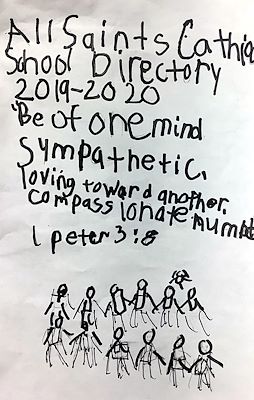 All Saints Cathic
School Directory
2019-2020
"Be of one mind
Sympathetic,
loving toward another,
compassionate, humble
1 peter 3:8